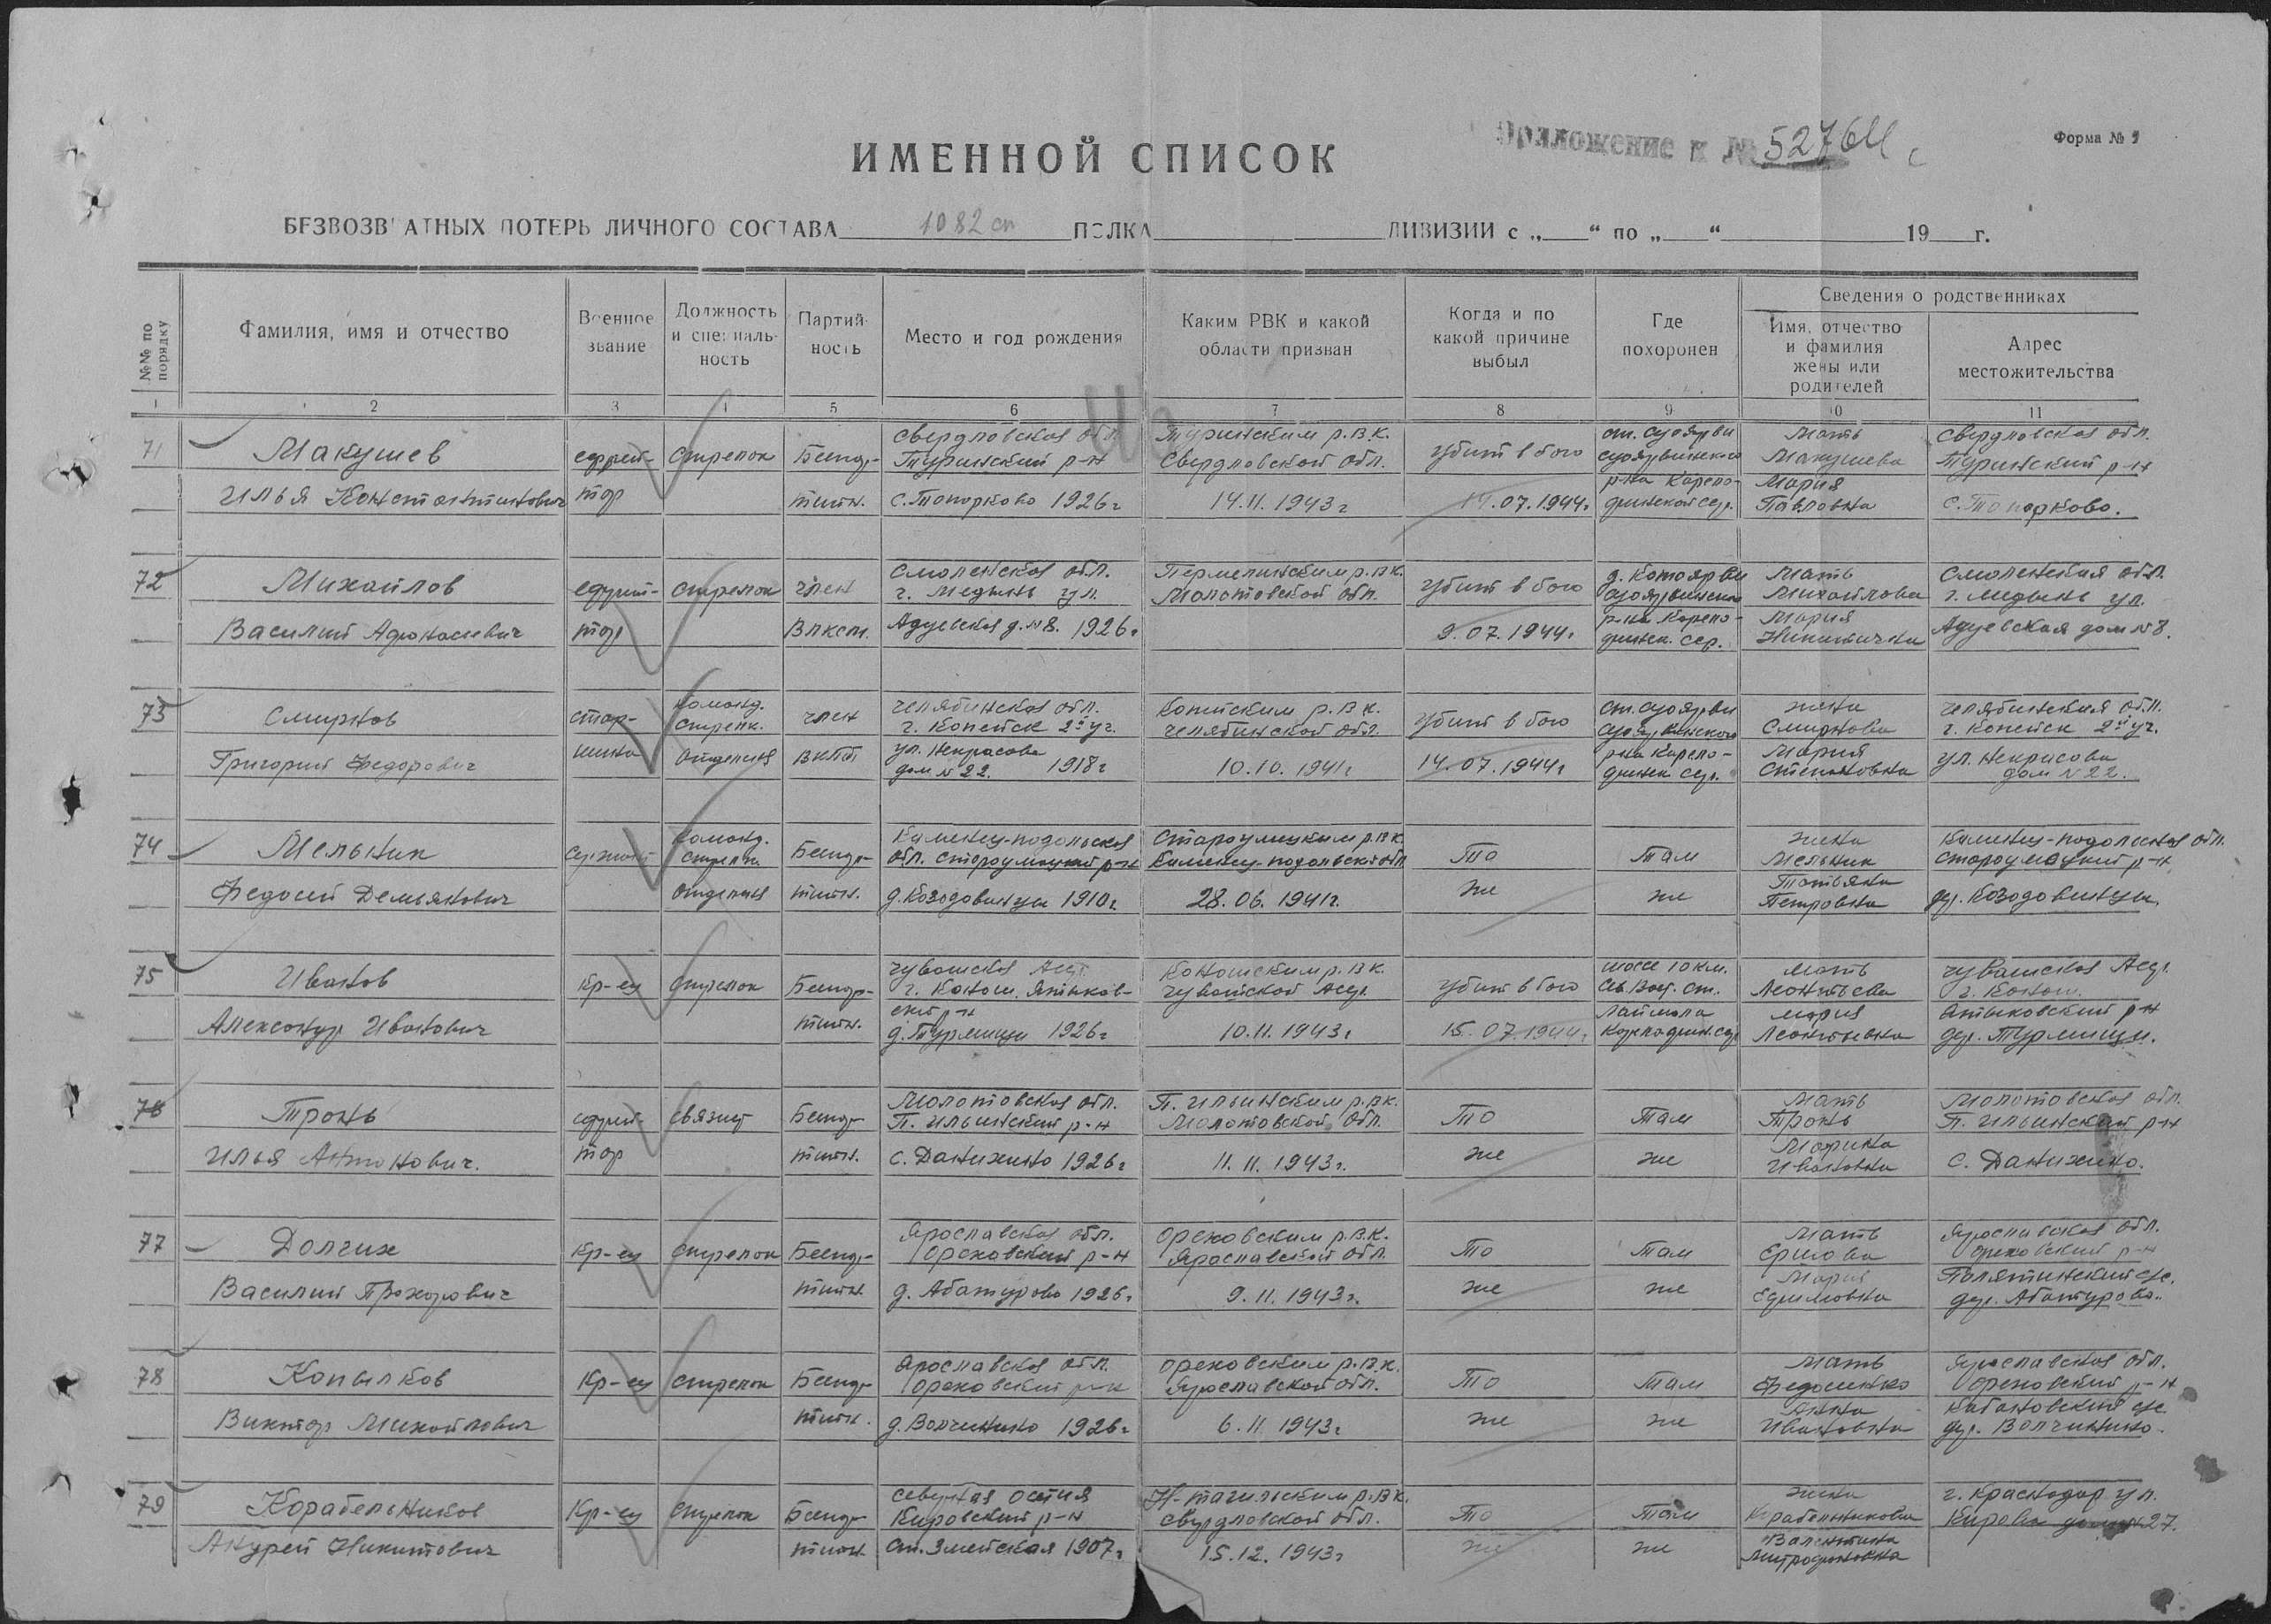 Приложение к № 52764 с
Форма № 2
ИМЕННОЙ СПИСОК
БЕЗВОЗВРАТНЫХ ПОТЕРЬ ЛИЧНОГО СОСТАВА 1082 сп ПОЛКА ДИВИЗИИ с „ “ по „ “ 19 г.
№№ по порядку
Фамилия, имя и отчество
Военное звание
Должность и специальность
Партийность
Место и год рождения
Каким РВК и какой области призван
Когда и по какой причине выбыл
Где похоронен
Сведения о родственниках
Имя, отчество и фамилия жены или родителей
Адрес местожительства
1 2 3 4 5 6 7 8 9 10 11
71 Макушев ефрей- стрелок Беспар- Свердловская обл. Туринский р-н Туринским р.в.к. Свердловской обл. убит в бою ст. Суоярви Суоярвинского Мать Макушева Свердловская обл. Туринский р-н
Илья Константинович тор тийн. с. Топорково 1926г 14.11.1943г 14.07.1944г р-на Карело-финской сср. Мария Павловна с. Топорково.
72 Михайлов ефрей- стрелок член Смоленская обл. г. Медынь ул. р.в.к. Молотовской обл. убит в бою Суоярвинского Мать Михайлова Смоленская обл. г. Медынь ул.
Василий Афонасиевич тор ВЛКСМ. Адуевская д.№8. 1926г 9.07.1944г р-на Карело-финск. сср. Мария Никитична Адуевская дом №8.
73 Смирнов стар- команд. стрелк. член Челябинская обл. г. Копейск 2й уч. Копейским р.в.к. Челябинской обл. убит в бою ст. Суоярви Суоярвинского жена Смирнова Челябинская обл. г. Копейск 2й уч.
Григорий Федорович шина отделения ВКПб ул. Некрасова дом №22. 1918г 10.10.1941г 14.07.1944г р-на Карело-финск сср. Мария Степановна ул. Некрасова дом №22.
74 Мельник сержант команд. стрелк. Беспар- Каменец-подольская обл. р-н р.в.к. Каменец-подольской обл То Там жена Мельник Каменец-подольская обл. р-н
Федосий Демьянович отделения тийн. д. Козодовинцы 1910г. 28.06.1941г. же же Татьяна Петровна дер. Козодовинцы.
75 Иванов Кр-ец стрелок Беспар- Чувашская Асср. г. Канаш. Янтиков- р.в.к. Чувашской Асср. убит в бою шоссе 10 км. Сев. Вост. ст. Мать Леонтьева Чувашская Асср. г. Канаш.
Александр Иванович тийн. ский р-н д. Турмыши 1926г 10.11.1943г 15.07.1944г Лаймола Карелофин.сср Мария Леонтьевна р-н дер. Турмыши.
76 Тронь ефрей- связист Беспар- Молотовская обл. П. Ильинский р-н П. Ильинским р.в.к. Молотовской обл. То Там Мать Тронь Молотовская обл. П. Ильинский р-н
Илья Антонович. тор тийн. с. Данихино 1926г 11.11.1943г. же же Марина Ивановна с. Данихино.
77 Долгих Кр-ец стрелок Беспар- Ярославская обл. Ореховский р-н Ореховским р.в.к. Ярославской обл. То Там Мать Ершова Ярославская обл. Ореховский р-н
Василий Прохорович тийн. д. Абатурово 1926г 9.11.1943г. же же Мария Ефимовна с/с. дер. Абатурово.
78 Копылков Кр-ец стрелок Беспар- Ярославская обл. Ореховский р-н Ореховским р.в.к. Ярославской обл. То Там Мать Федосенко Ярославская обл. Ореховский р-н
Виктор Михайлович тийн. д. Волчихино 1926г 6.11.1943г же же Анна Ивановна с/с. дер. Волчихино.
79 Корабельников Кр-ец стрелок Беспар- Северная Осетия Кировский р-н Н-тагильским р.в.к. Свердловской обл. То Там жена Корабельникова г. Краснодар ул. Кирова дом №27.
Андрей Никитович тийн. ст. Змейская 1907г 15.12.1943г же же Валентина Митрофановна